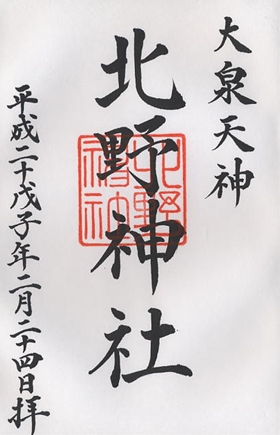 大泉天神
北野神社
北野神社
平成二十戊子年二月二十四日拝